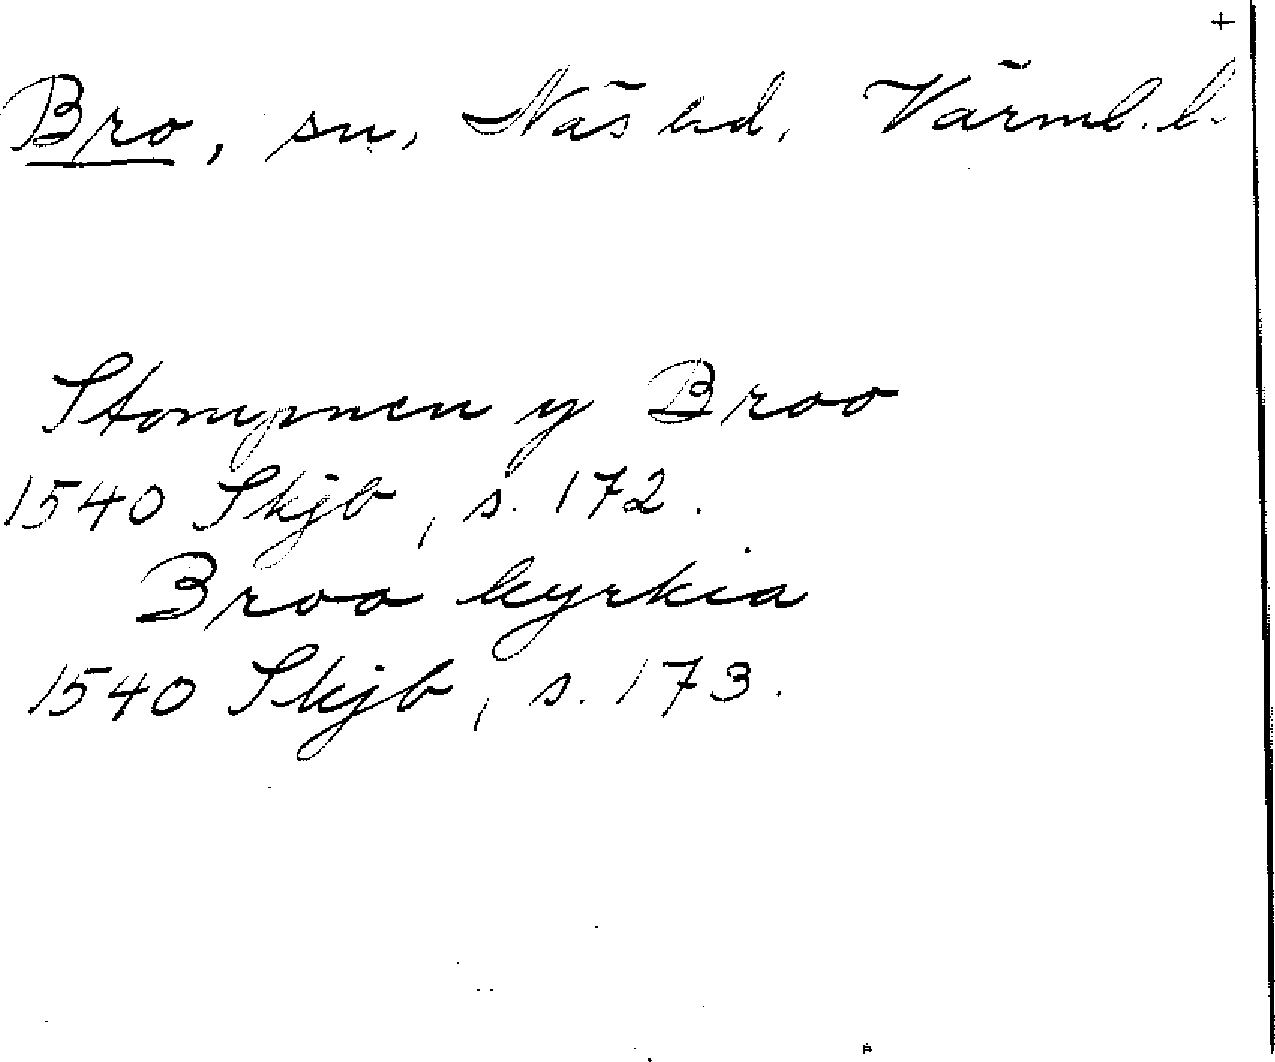 +
Bro, sn, Näs hd, Värml. l.
Stompnen y Broo
1540 Skjb, s. 172.
Broo kyrkia
1540 Skjb, s. 173.